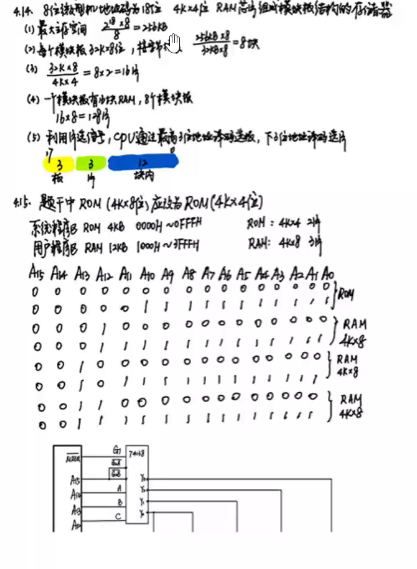 4.14. 8位微型机地址码为18位 4K×4位 RAM芯片组成模块板结构的存储器
(1) 最大主存空间 2^18×8 / 8 = 256KB
(2) 每个模块板32K×8位, 256KB×8 / 32KB×8 = 8块
(3) 32K×8 / 4K×4 = 8×2 = 16片
(4) 一个模块板有16块RAM, 8个模块板
16×8 = 128片
(5) 利用片选信号, CPU通过最高3位地址译码选板, 下3位地址译码选片
17
3 3 12
板 片 块内
4.15. 题干中 ROM (4K×8位) 应该为 ROM (4K×4位)
系统程序区 ROM 4KB 0000H~0FFFH ROM: 4K×4 2片
用户程序区 RAM 12KB 1000H~3FFFH RAM: 4K×8 3片
A15 A14 A13 A12 A11 A10 A9 A8 A7 A6 A5 A4 A3 A2 A1 A0
0 0 0 0 0 0 0 0 0 0 0 0 0 0 0 0
ROM
0 0 0 0 0 1 1 1 1 1 1 1 1 1 1 1
0 0 0 1 0 0 0 0 0 0 0 0 0 0 0 0
RAM
4K×8
0 0 0 1 1 1 1 1 1 1 1 1 1 1 1 1
0 0 1 0 0 0 0 0 0 0 0 0 0 0 0 0
RAM
4K×8
0 0 1 0 1 1 1 1 1 1 1 1 1 1 1 1
0 0 1 1 0 0 0 0 0 0 0 0 0 0 0 0
RAM
4K×8
0 0 1 1 1 1 1 1 1 1 1 1 1 1 1 1
MREQ G1 74138
A15 Y0
A14 A Y1
A13 B Y2
C